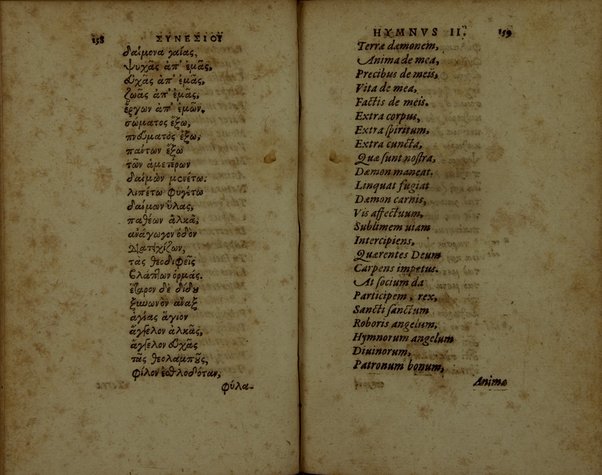 158 ΣΥΝΕΣΙΟΥ
δαίμονα γαίας,
ψυχᾶς ἀπ' ἐμᾶς,
εὐχᾶς ἀπ' ἐμᾶς,
ζωᾶς ἀπ' ἐμᾶς,
ἔργων ἀπ' ἐμῶν.
σώματος ἔξω,
πνεύματος ἔξω,
πάντων ἔξω
τῶν ἁμετέρων
δαίμων μενέτω.
λιπέτω φυγέτω
δαίμων ὕλας,
παθέων ἀλκὰ,
ἀνάγωγον ὁδὸν
διατειχίζων,
τὰς θεοδιφεῖς
θλάττων ὁρμάς.
ἕταρον δὲ δίδου
ξυνωνὸν ἄναξ
ἁγίας ἅγιον
ἄγγελον ἀλκᾶς,
ἄγγελον εὐχᾶς
τᾶς θεολαμποῦς,
φίλον ἐσθλοδόταν,
φύλα-
HYMNVS II. 159
Terræ dæmonem,
Anima de mea,
Precibus de meis,
Vita de mea,
Factis de meis.
Extra corpus,
Extra spiritum,
Extra cuncta,
Quæ sunt nostra,
Dæmon maneat.
Linquat fugiat
Dæmon carnis,
Vis affectuum,
Sublimem viam
Intercipiens,
Quærentes Deum
Carpens impetus.
At socium da
Participem, rex,
Sancti sanctum
Roboris angelum,
Hymnorum angelum
Diuinorum,
Patronum bonum,
Animæ